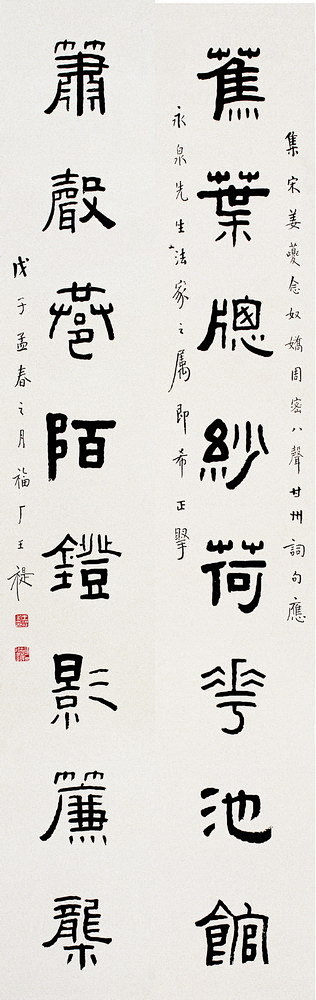 集宋姜夔念奴嬌周密八聲甘州詞句應
蕉葉牕紗荷花池館
永泉先生法家之属即希正擘
簫聲巷陌鐙影簾櫳
戊子孟春之月福厂王禔